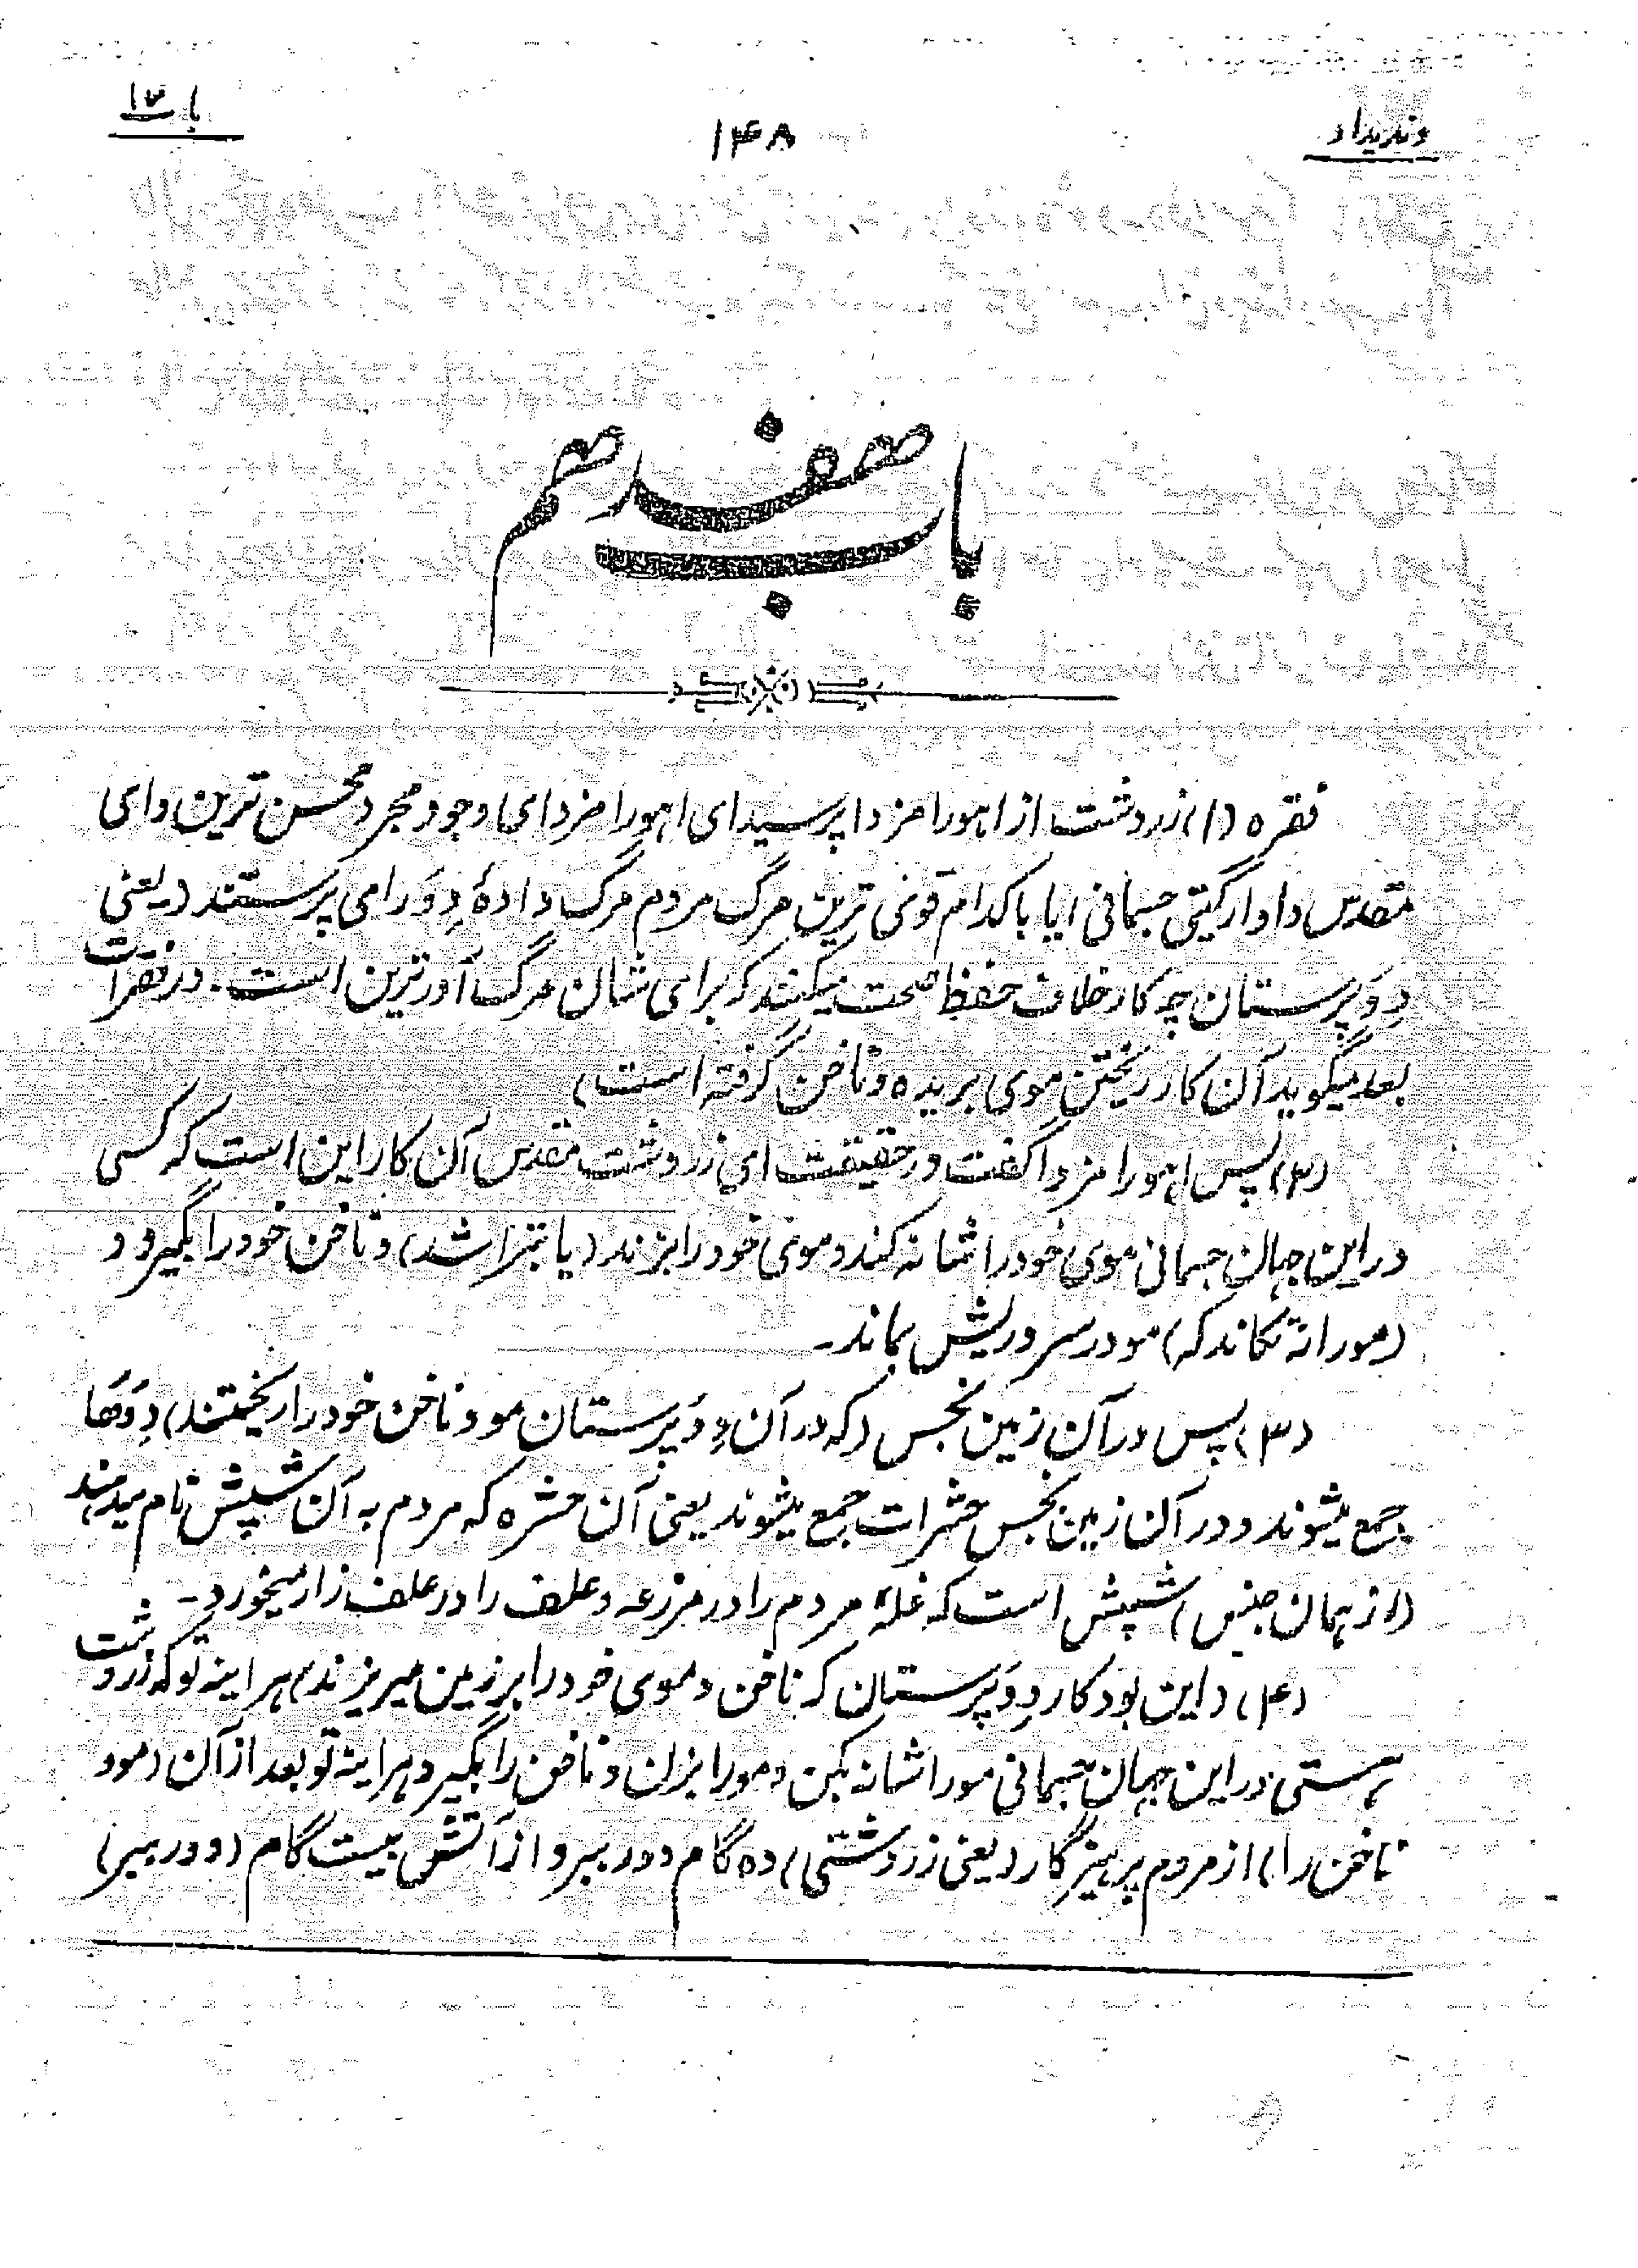 وندیداد
۱۴۸
باب ۱۷
باب هفدهم
فقره (۱) زردشت از اهورامزدا پرسید ای اهورامزدا ای وجود مجرد محسن ترین و ای
مقدس داوار گیتی جسمانی آیا با کدام قوی ترین مرگ مردم مرگ دادهٔ دِوَ را می پرستند (یعنی
دِوَ پرستان چه کار خلاف حفظ صحت میکنند که برای شان مرگ آور ترین است. در فقرات
بعد میگوید آن کار ریختن موی بریده و ناخن گرفته است)
(۲) پس اهورامزدا گفت در حقیقت ای زردشت مقدس آن کار این است که کسی
در این جهان جسمانی موی خود را شانه کند و موی خود را بزند (یا بتراشد) و ناخن خود را بگیرد و
(مو را نه تکاند که) مو در سر و ریش بماند ـ
(۳) پس در آن زمین نجس (که در آن دِوَ پرستان مو و ناخن خود را ریختند) دِوَها
جمع میشوند و در آن زمین نجس حشرات جمع میشوند یعنی آن حشره که مردم به آن شپش نام میدهند
(از همان جنس) شپش است که غلهٔ مردم را در مزرعه و علف را در علف زار میخورد ـ
(۴) (این بود کار دِوَ پرستان که ناخن و موی خود را بر زمین میریزند) هر اینه تو که زردشت
هستی در این جهان جسمانی مو را شانه بکن و مو را بزان و ناخن را بگیر و هر اینه تو بعد از آن (مو و
ناخن را) از مردم پرهیزگار (یعنی زردشتی) ده گام دور ببر و از آتش بیست گام (دور ببر)